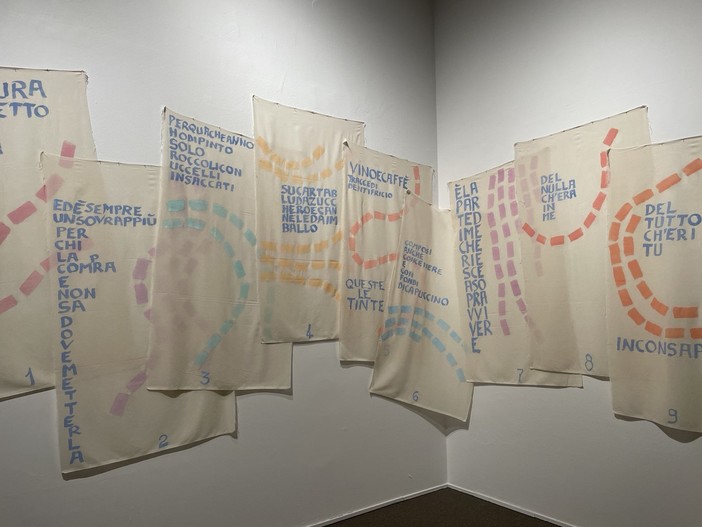 URA
ETTO
1
ED È SEMPRE
UN SOVRAPPIÙ
PER
CHI
LA
COMPRA
E NON
SA
DOVE METTERLA
2
PERQUALCHEANNO
HO MPINTO
SOLO
ROCCOLI CON
UCCELLI
INSACCATI
3
SUCARTAB
LUDAZUCC
HEROESAN
NELEDAIM
BALLO
4
VINOECAFFÈ
TRACCE DI
DENTIFRICIO
QUESTE
LE
TINTE
COMPOSI
ANCHE
CON
FONDI
DI CAPPUCCINO
6
È LA
PAR
TE D
I ME
CHE
RIE
SCE
A SO
PRA
VVI
VER
E
7
DEL
NULLA
CH'ERA
IN
ME
8
DEL
TUTTO
CH'ERI
TU
INCONSAP
9